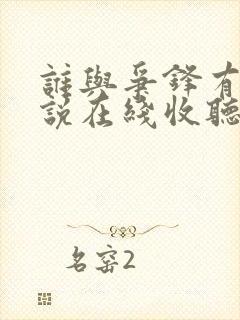 誰與爭鋒有
說在綫收聽
名窑2